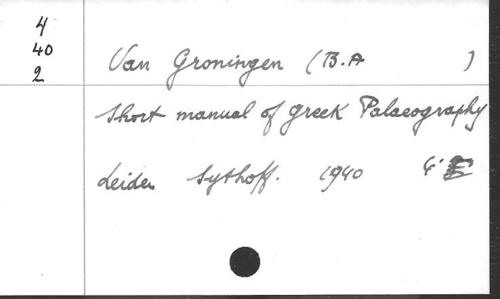 4
40
2
Van Groningen (B.A )
Short manual of Greek Palaeography
Leiden Sythoff. 1940 4°